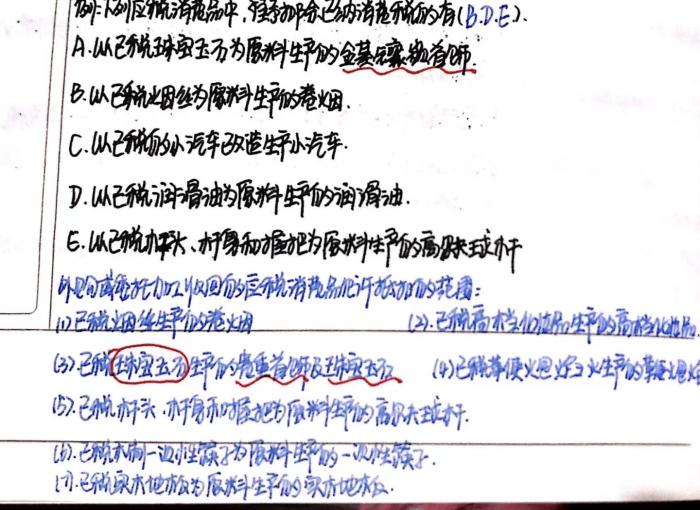 例:下列应税消费品中,准予扣除已纳消费税的有(B.D.E).
A.以已税珠宝玉石为原料生产的金基元素镶首饰.
B.以已税烟丝为原料生产的卷烟.
C.以已税的小汽车改造生产小汽车.
D.以已税润滑油为原料生产的润滑油.
E.以已税杆头、杆身和握把为原料生产的高尔夫球杆
外购或委托加工收回的应税消费品允许抵扣的范围:
(1)已税烟丝生产的卷烟 (2).已税高档化妆品生产的高档化妆品
(3).已税珠宝玉石生产的贵重首饰及珠宝玉石 (4)已税鞭炮焰火生产的鞭炮焰火
(5).已税杆头.杆身和握把为原料生产的高尔夫球杆.
(6).已税木制一次性筷子为原料生产的一次性筷子.
(7).已税实木地板为原料生产的实木地板.